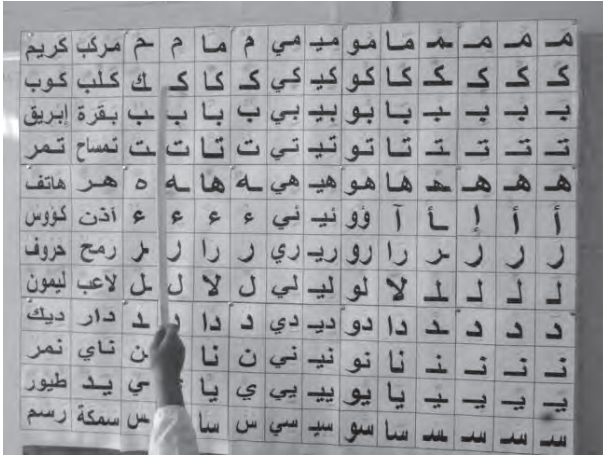 مـ مـ مـ ـمـ ما مو ميـ مي م ما م ـم مركب كريم
كـ كـ كـ ـكـ كا كو كيـ كي كـ كا كـ ك كلب كوب
بـ بـ بـ ـبـ با بو بيـ بي ب با ب ـب بقرة إبريق
تـ تـ تـ ـتـ تا تو تيـ تي ت تا ت ـت تمساح تمر
هـ هـ هـ ـهـ ها هو هيـ هي ـه ها ـه ه هر هاتف
أ أ إ ـأ آ ؤو ئيـ ئي ء ء ء ء أذن كؤوس
ر ر ر ـر را رو ريـ ري ر را ر ـر رمح حروف
لـ لـ لـ ـلـ لا لو ليـ لي ل لا ل ـل لاعب ليمون
د د د ـد دا دو ديـ دي د دا ـد دار ديك
نـ نـ نـ ـنـ نا نو نيـ ني ن نا ـن ناي نمر
يـ يـ يـ ـيـ يا يو ييـ يي ي يا ـي يد طيور
سـ سـ سـ ـسـ سا سو سيـ سي س سا ـس سمكة رسم